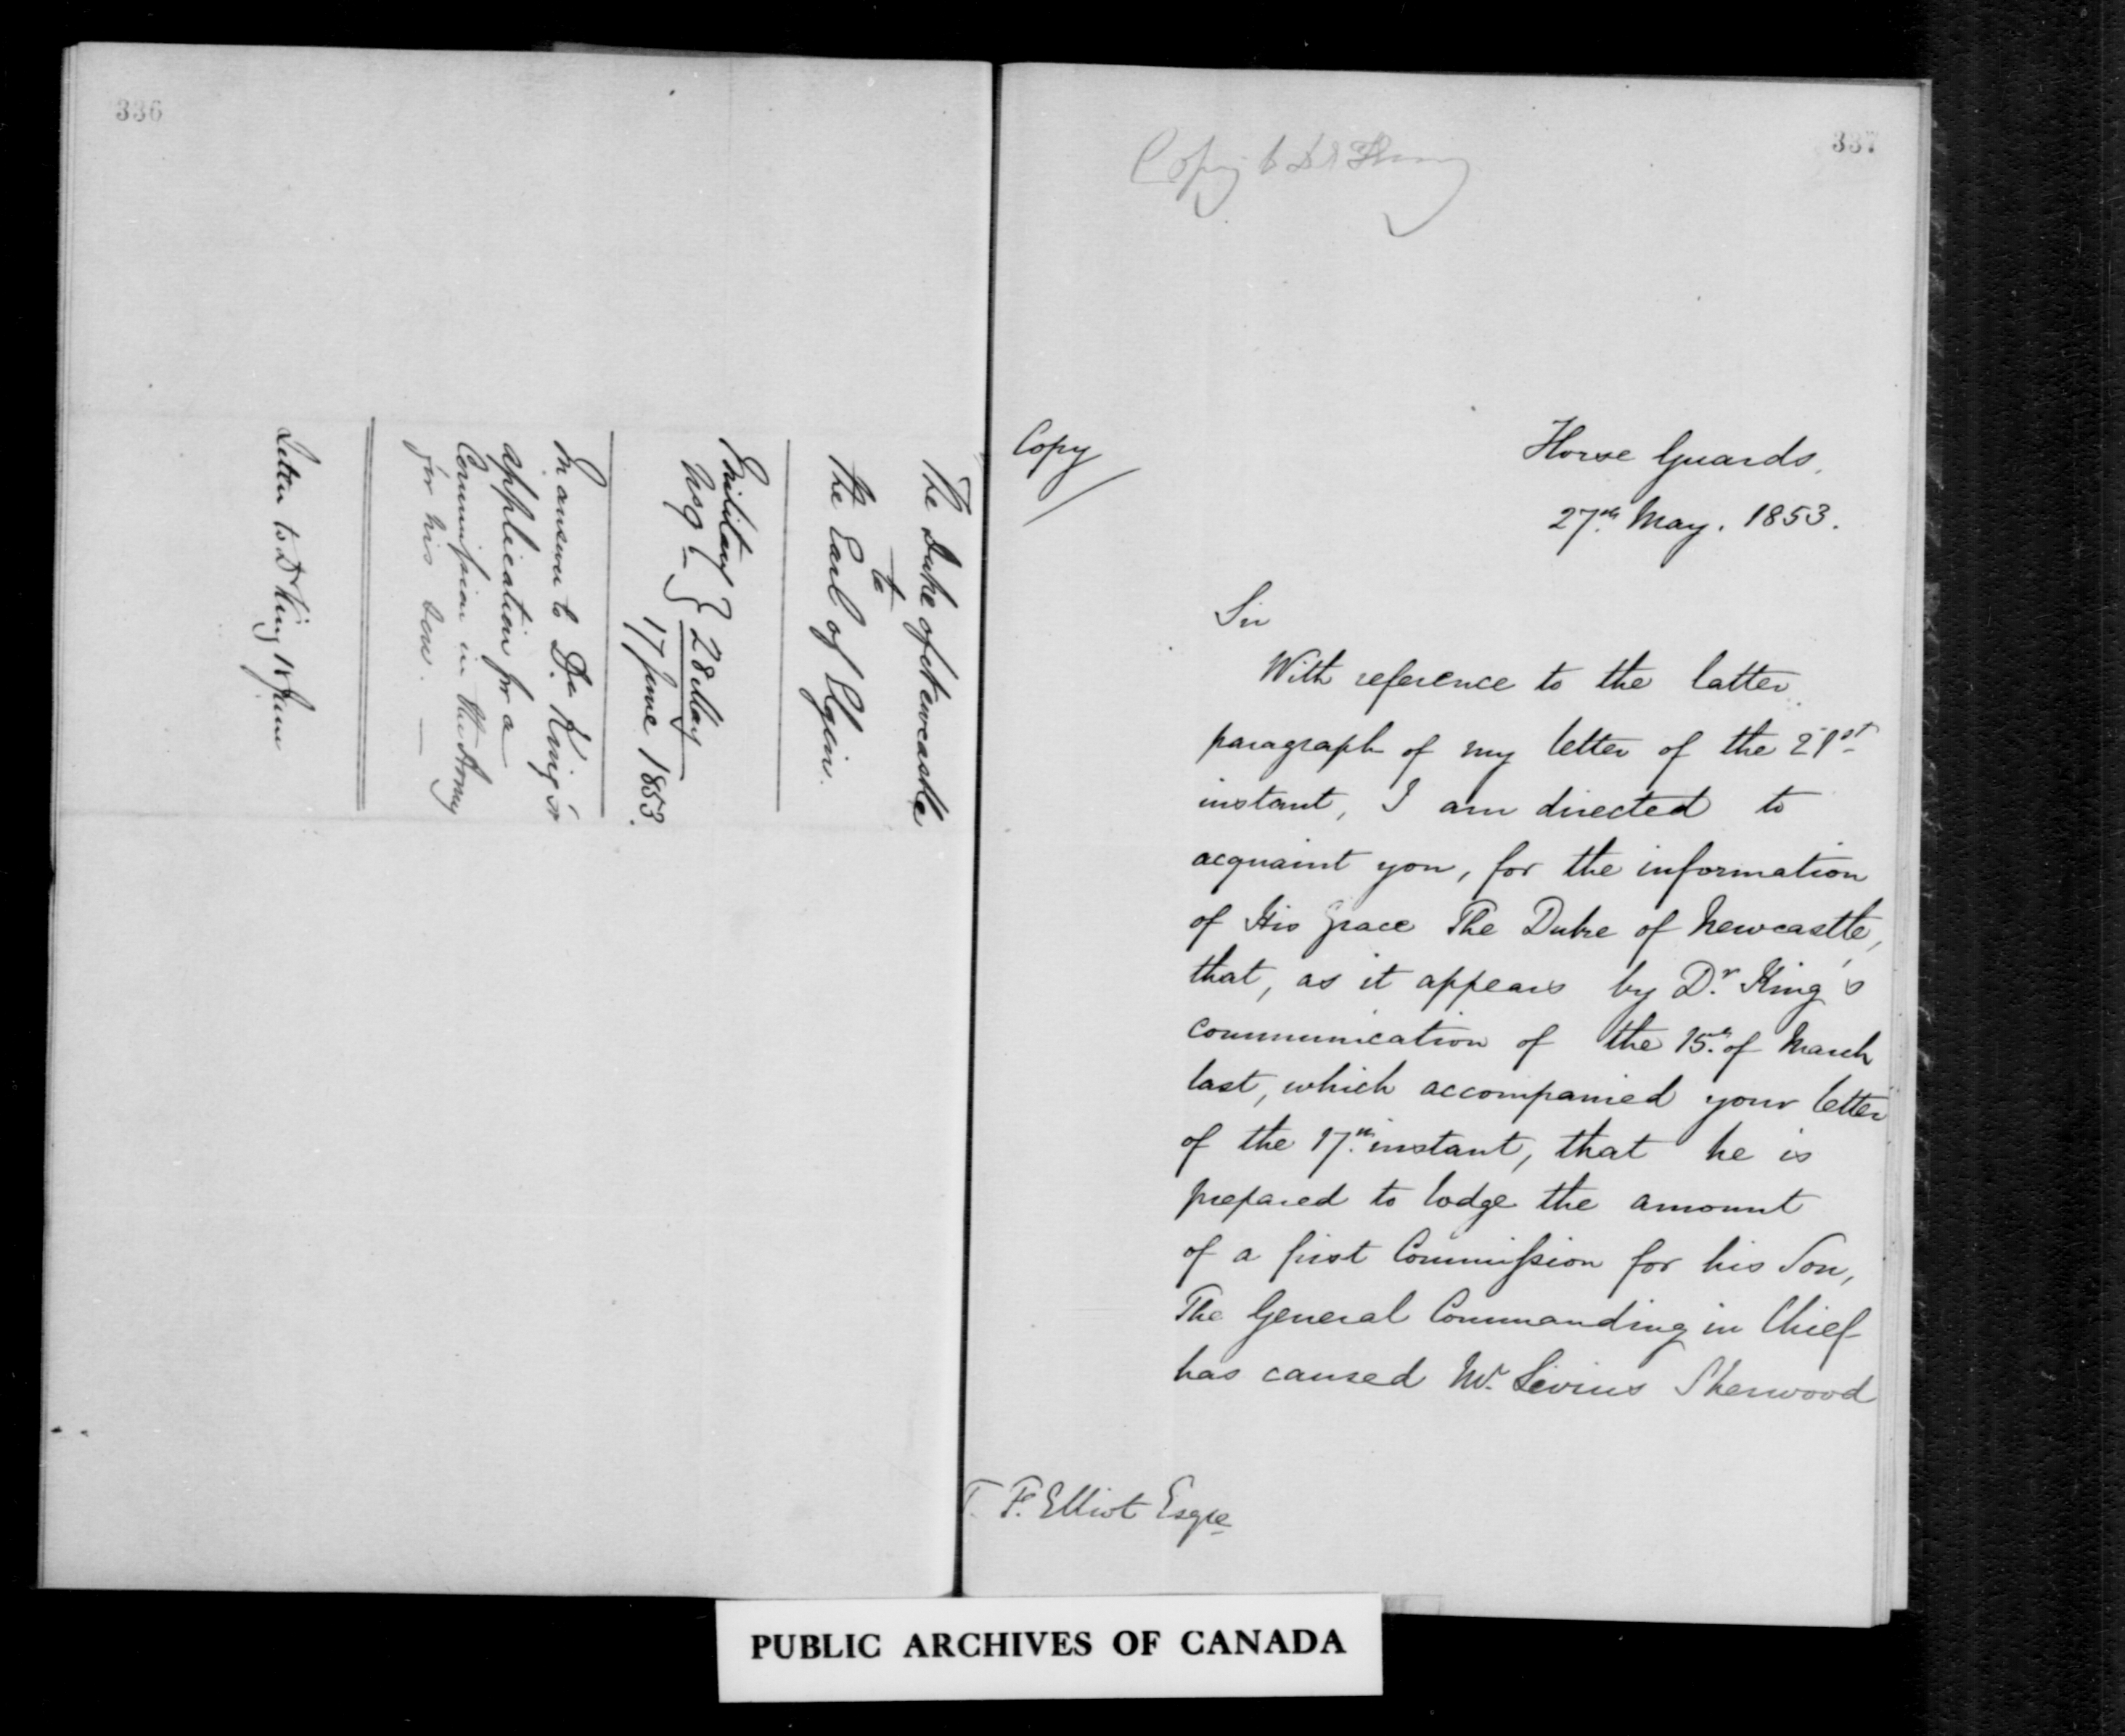 336
The Duke of Newcastle
to
The Earl of Elgin.
Military
No 9 -
28 May
17 June 1853.
In answer to Dr. King's
application for a
Commission in the Army
for his son. —
Letter to Dr King 18 June
337
Copy to Dr King
Copy
Horse Guards,
27th May. 1853.
Sir
With reference to the latter
paragraph of my letter of the 21st
instant, I am directed to
acquaint you, for the information
of His Grace The Duke of Newcastle,
that, as it appears by Dr. King's
communication of the 15th. of March
last, which accompanied your letter
of the 17th. instant, that he is
prepared to lodge the amount
of a first Commission for his Son,
The General Commanding in Chief
has caused Mr. Livius Sherwood
T. F. Elliot Esqre
PUBLIC ARCHIVES OF CANADA